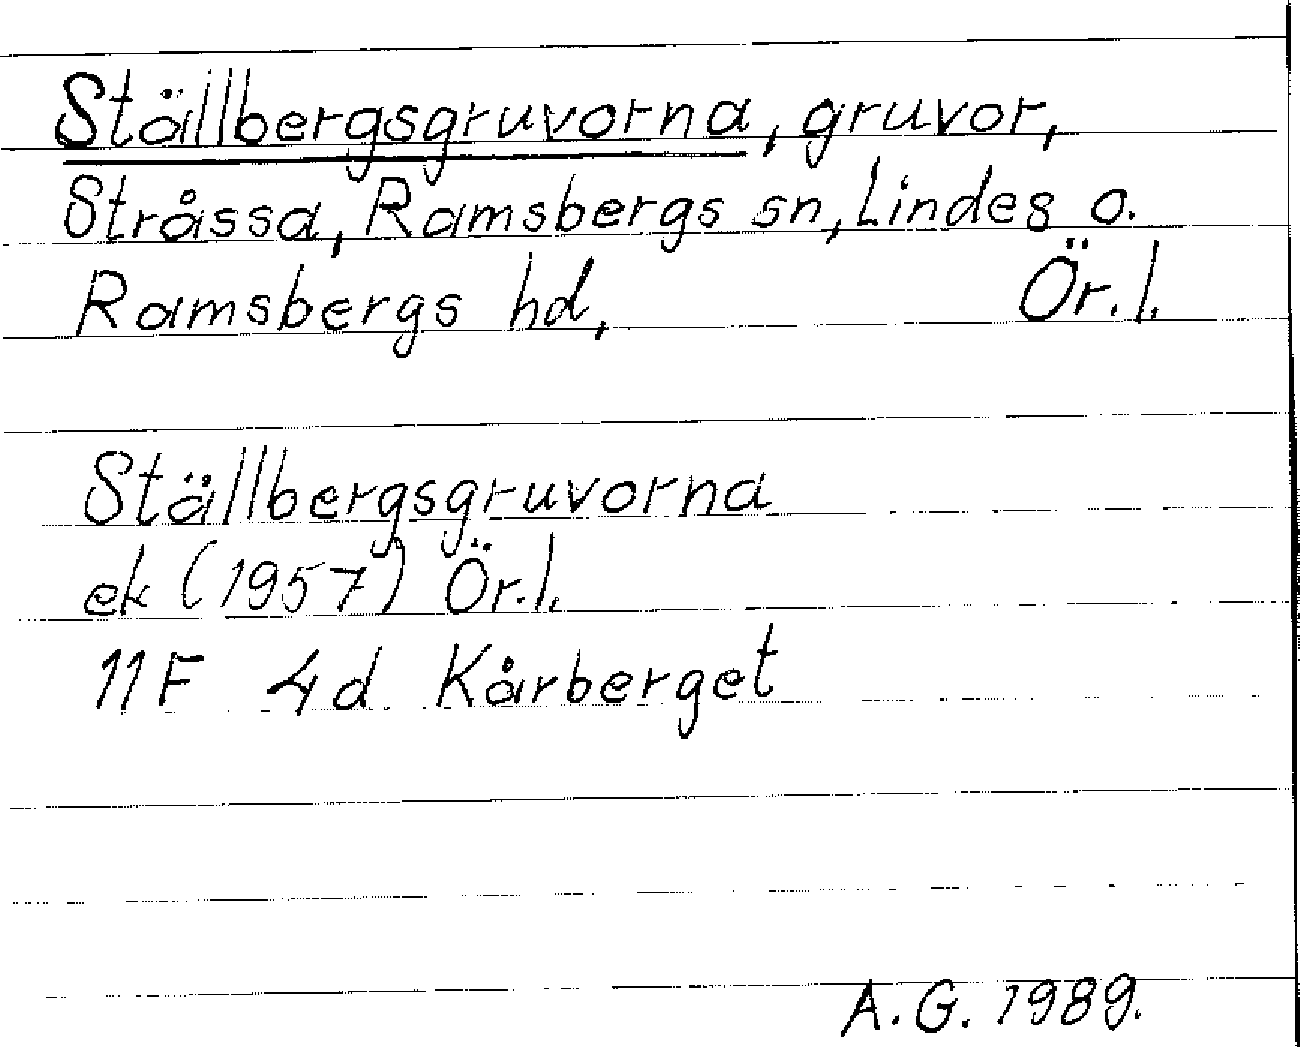 Ställbergsgruvorna, gruvor,
Stråssa, Ramsbergs sn, Lindes o.
Ramsbergs hd, Ör. l.
Ställbergsgruvorna
ek (1957) Ör. l.
11F 4d Kårberget
A. G. 1989.